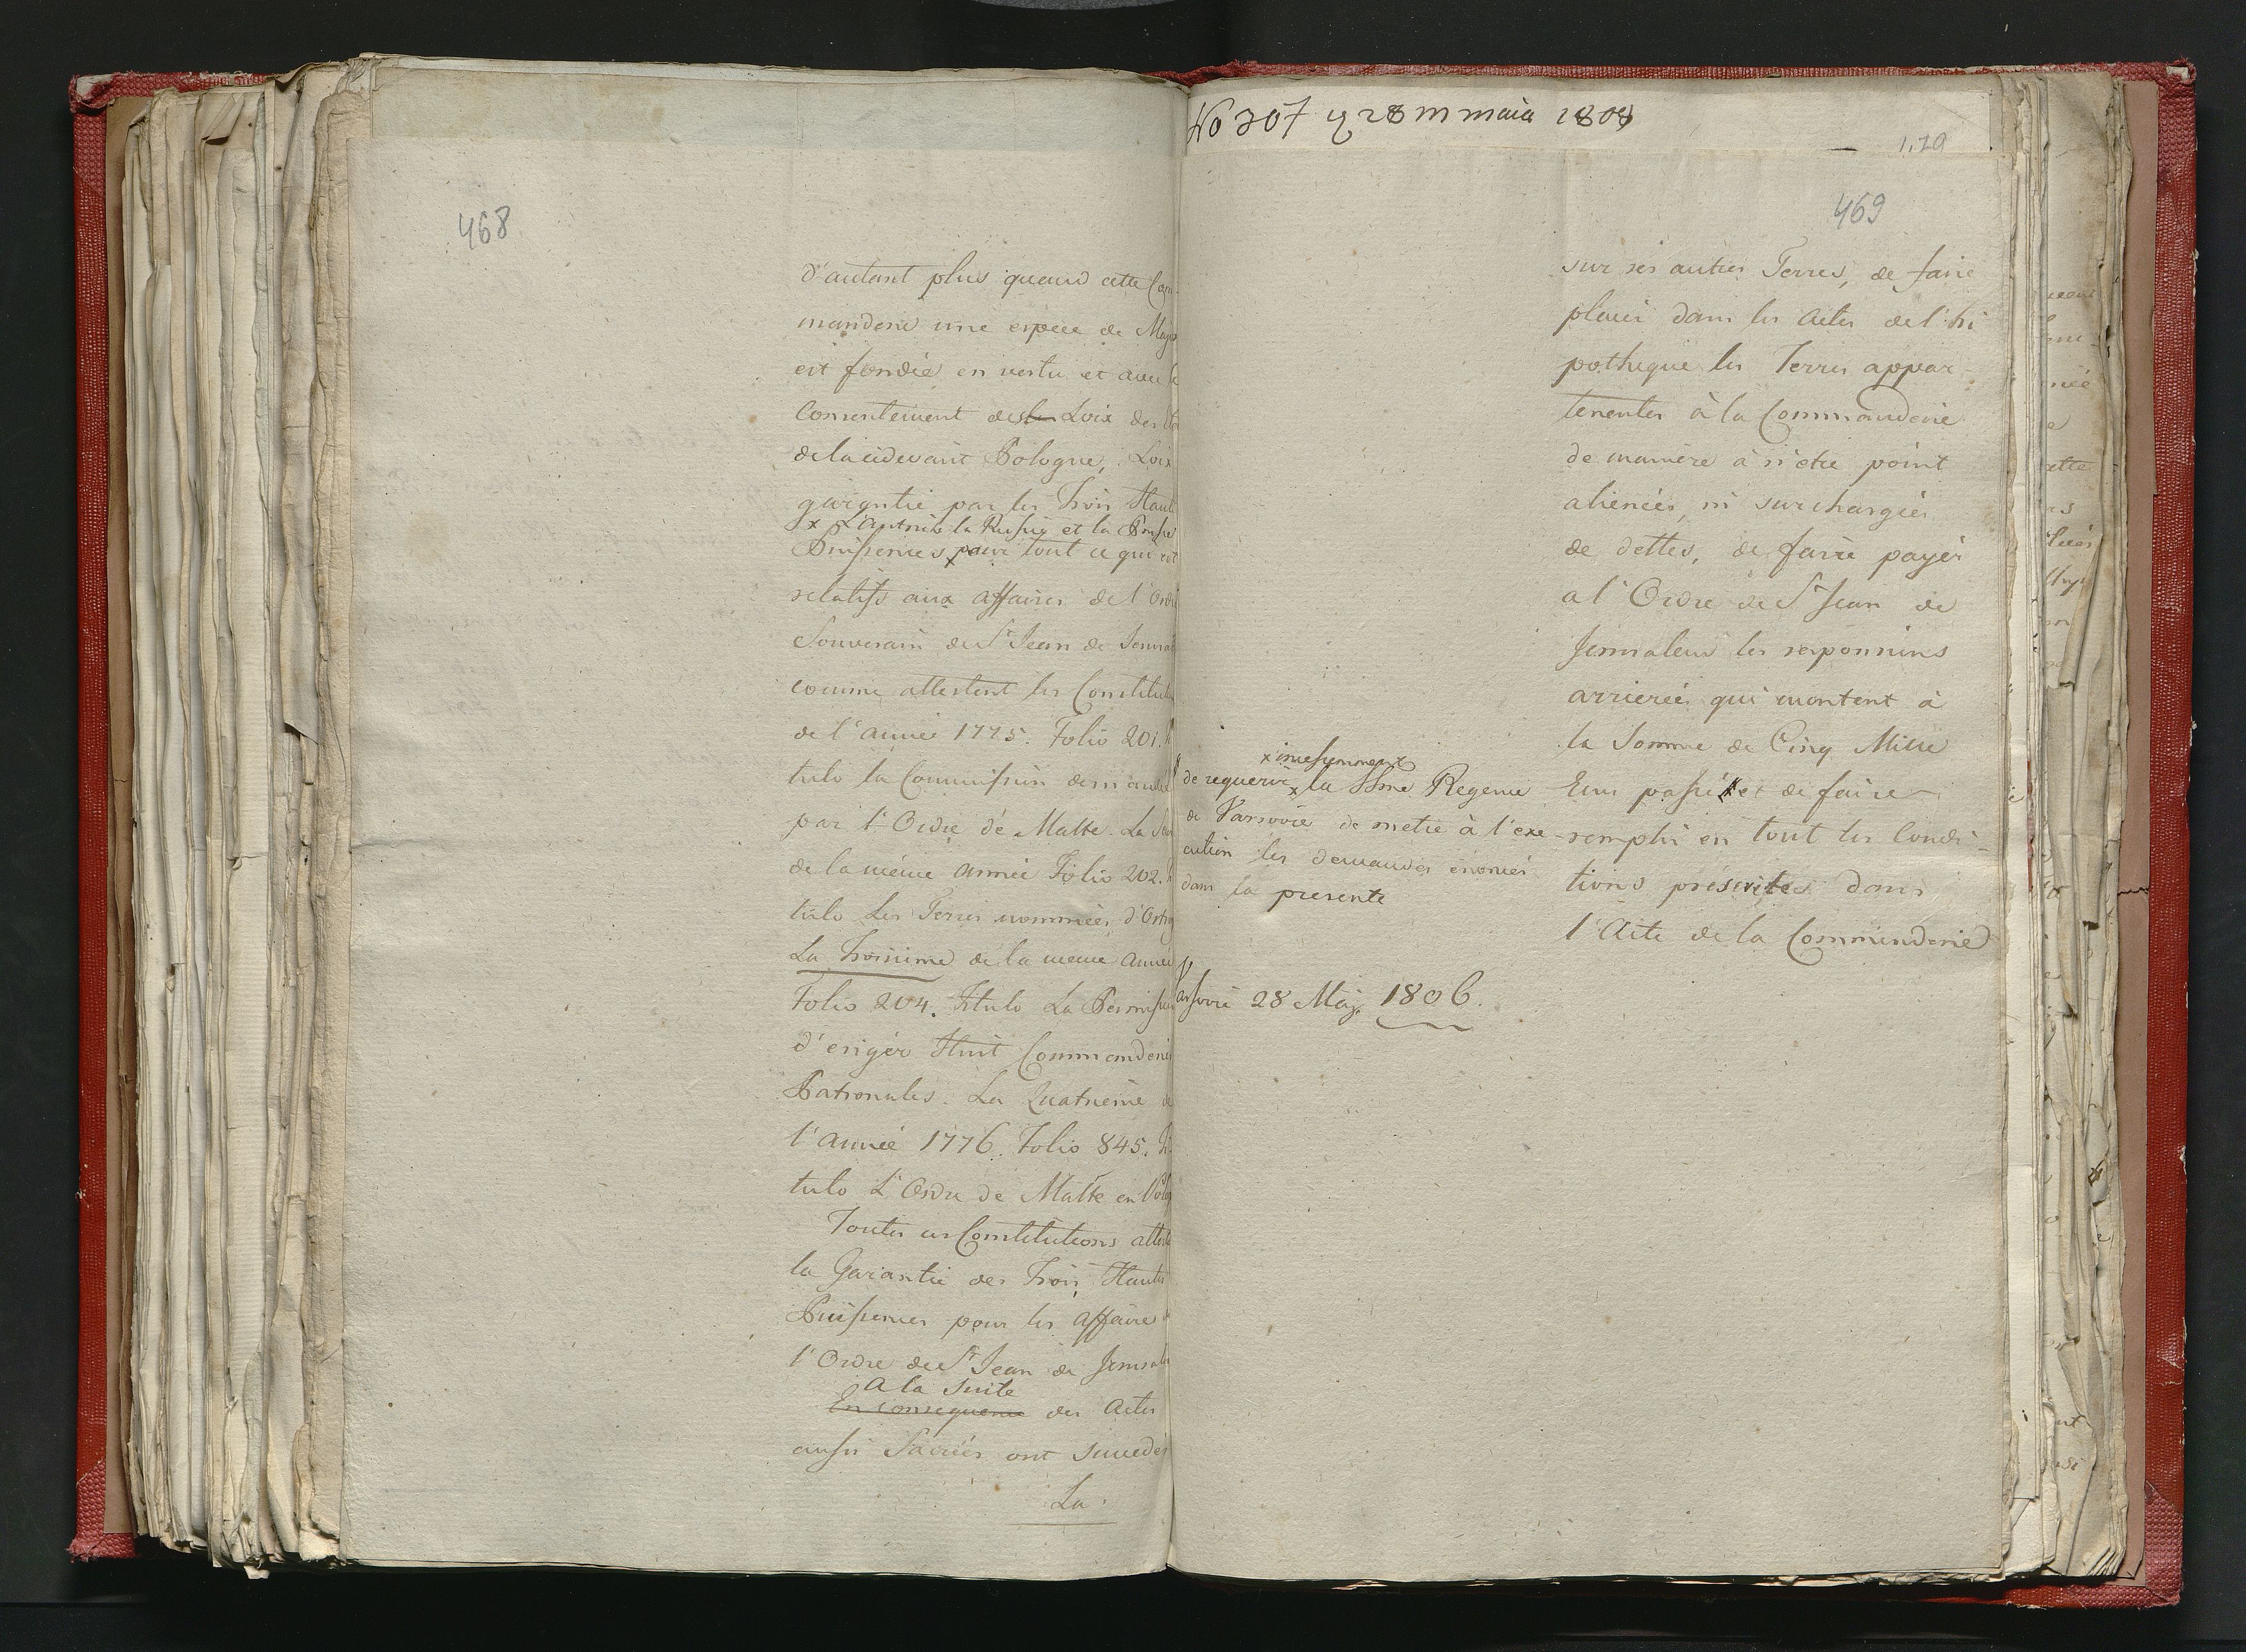 468
d'autant plus quand cette Com-
manderie une espece de Major
est fondée en vertu et avec le
Consentement des Loix des
de la cidevant Pologne, Loix
garantie par les Trois Haute
x L'Autriche la Russie et la Prusse
Puissences x pour tout ce qui est
relatifs aux affaires de l'Ordre
Souverain de St Jean de Jerusa
comme attestent les Constitut
de l'année 1775. Folio 201. ti
tulo la Commission demandée
par l'Ordre de Malte. La
de la même année Folio 202. ti
tulo Les Terres nommées d'Ostro
La Troisieme de la meme année
Folio 204. Titulo La Permission
d'eriger Huit Commanderies
Patronales. La Quatrieme de
l'année 1776. Folio 845. Ti-
tulo L'Ordre de Malte en Polog
Toutes ces Constitutions atteste
la Garantie des Trois Hautes
Puissences pour les affaires de
l'Ordre de St Jean de Jerusale
A la Suite
En consequence des Actes
aussi Sacrées ont succedés
La
No 307 28 m maia 1808
469
sur ses autres Terres, de faire
placer dans les Actes de l'hi
potheque les Terres appar-
tenentes à la Commanderie
de manière à n'etre point
alienées, ni surchargées
de dettes, de faire payer
a l'Ordre de St Jean de
Jerusalem les responsions
arrierées qui montent à
la Somme de Cinq Mille
Ecus passé et de faire
remplir en tout les Condi-
tions préscrites dans
l'Acte de la Commenderie
x incessemment
de requerir x la Regence
de Varsovie de metre à l'exe-
cution les demandes énoncés
dans la presente
Varsovie 28 Maj. 1806.